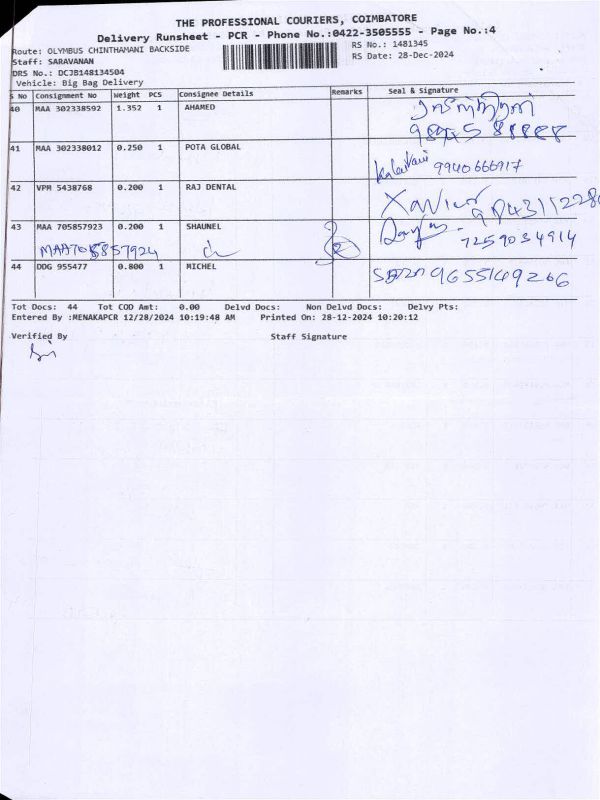 THE PROFESSIONAL COURIERS, COIMBATORE
Delivery Runsheet - PCR - Phone No.:0422-3505555 - Page No.:4
Route: OLYMBUS CHINTHAMANI BACKSIDE
RS No.: 1481345
Staff: SARAVANAN
RS Date: 28-Dec-2024
DRS No.: DCJB148134504
Vehicle: Big Bag Delivery
S No Consignment No Weight PCS Consignee Details Remarks Seal & Signature
40 MAA 302338592 1.352 1 AHAMED
41 MAA 302338012 0.250 1 POTA GLOBAL
9940666917
42 VPM 5438768 0.200 1 RAJ DENTAL Xavier
43 MAA 705857923 0.200 1 SHAUNEL
7259034914
44 DDG 955477 0.800 1 MICHEL
9655149266
Tot Docs: 44 Tot COD Amt: 0.00 Delvd Docs: Non Delvd Docs: Delvy Pts:
Entered By :MENAKAPCR 12/28/2024 10:19:48 AM Printed On: 28-12-2024 10:20:12
Verified By Staff Signature